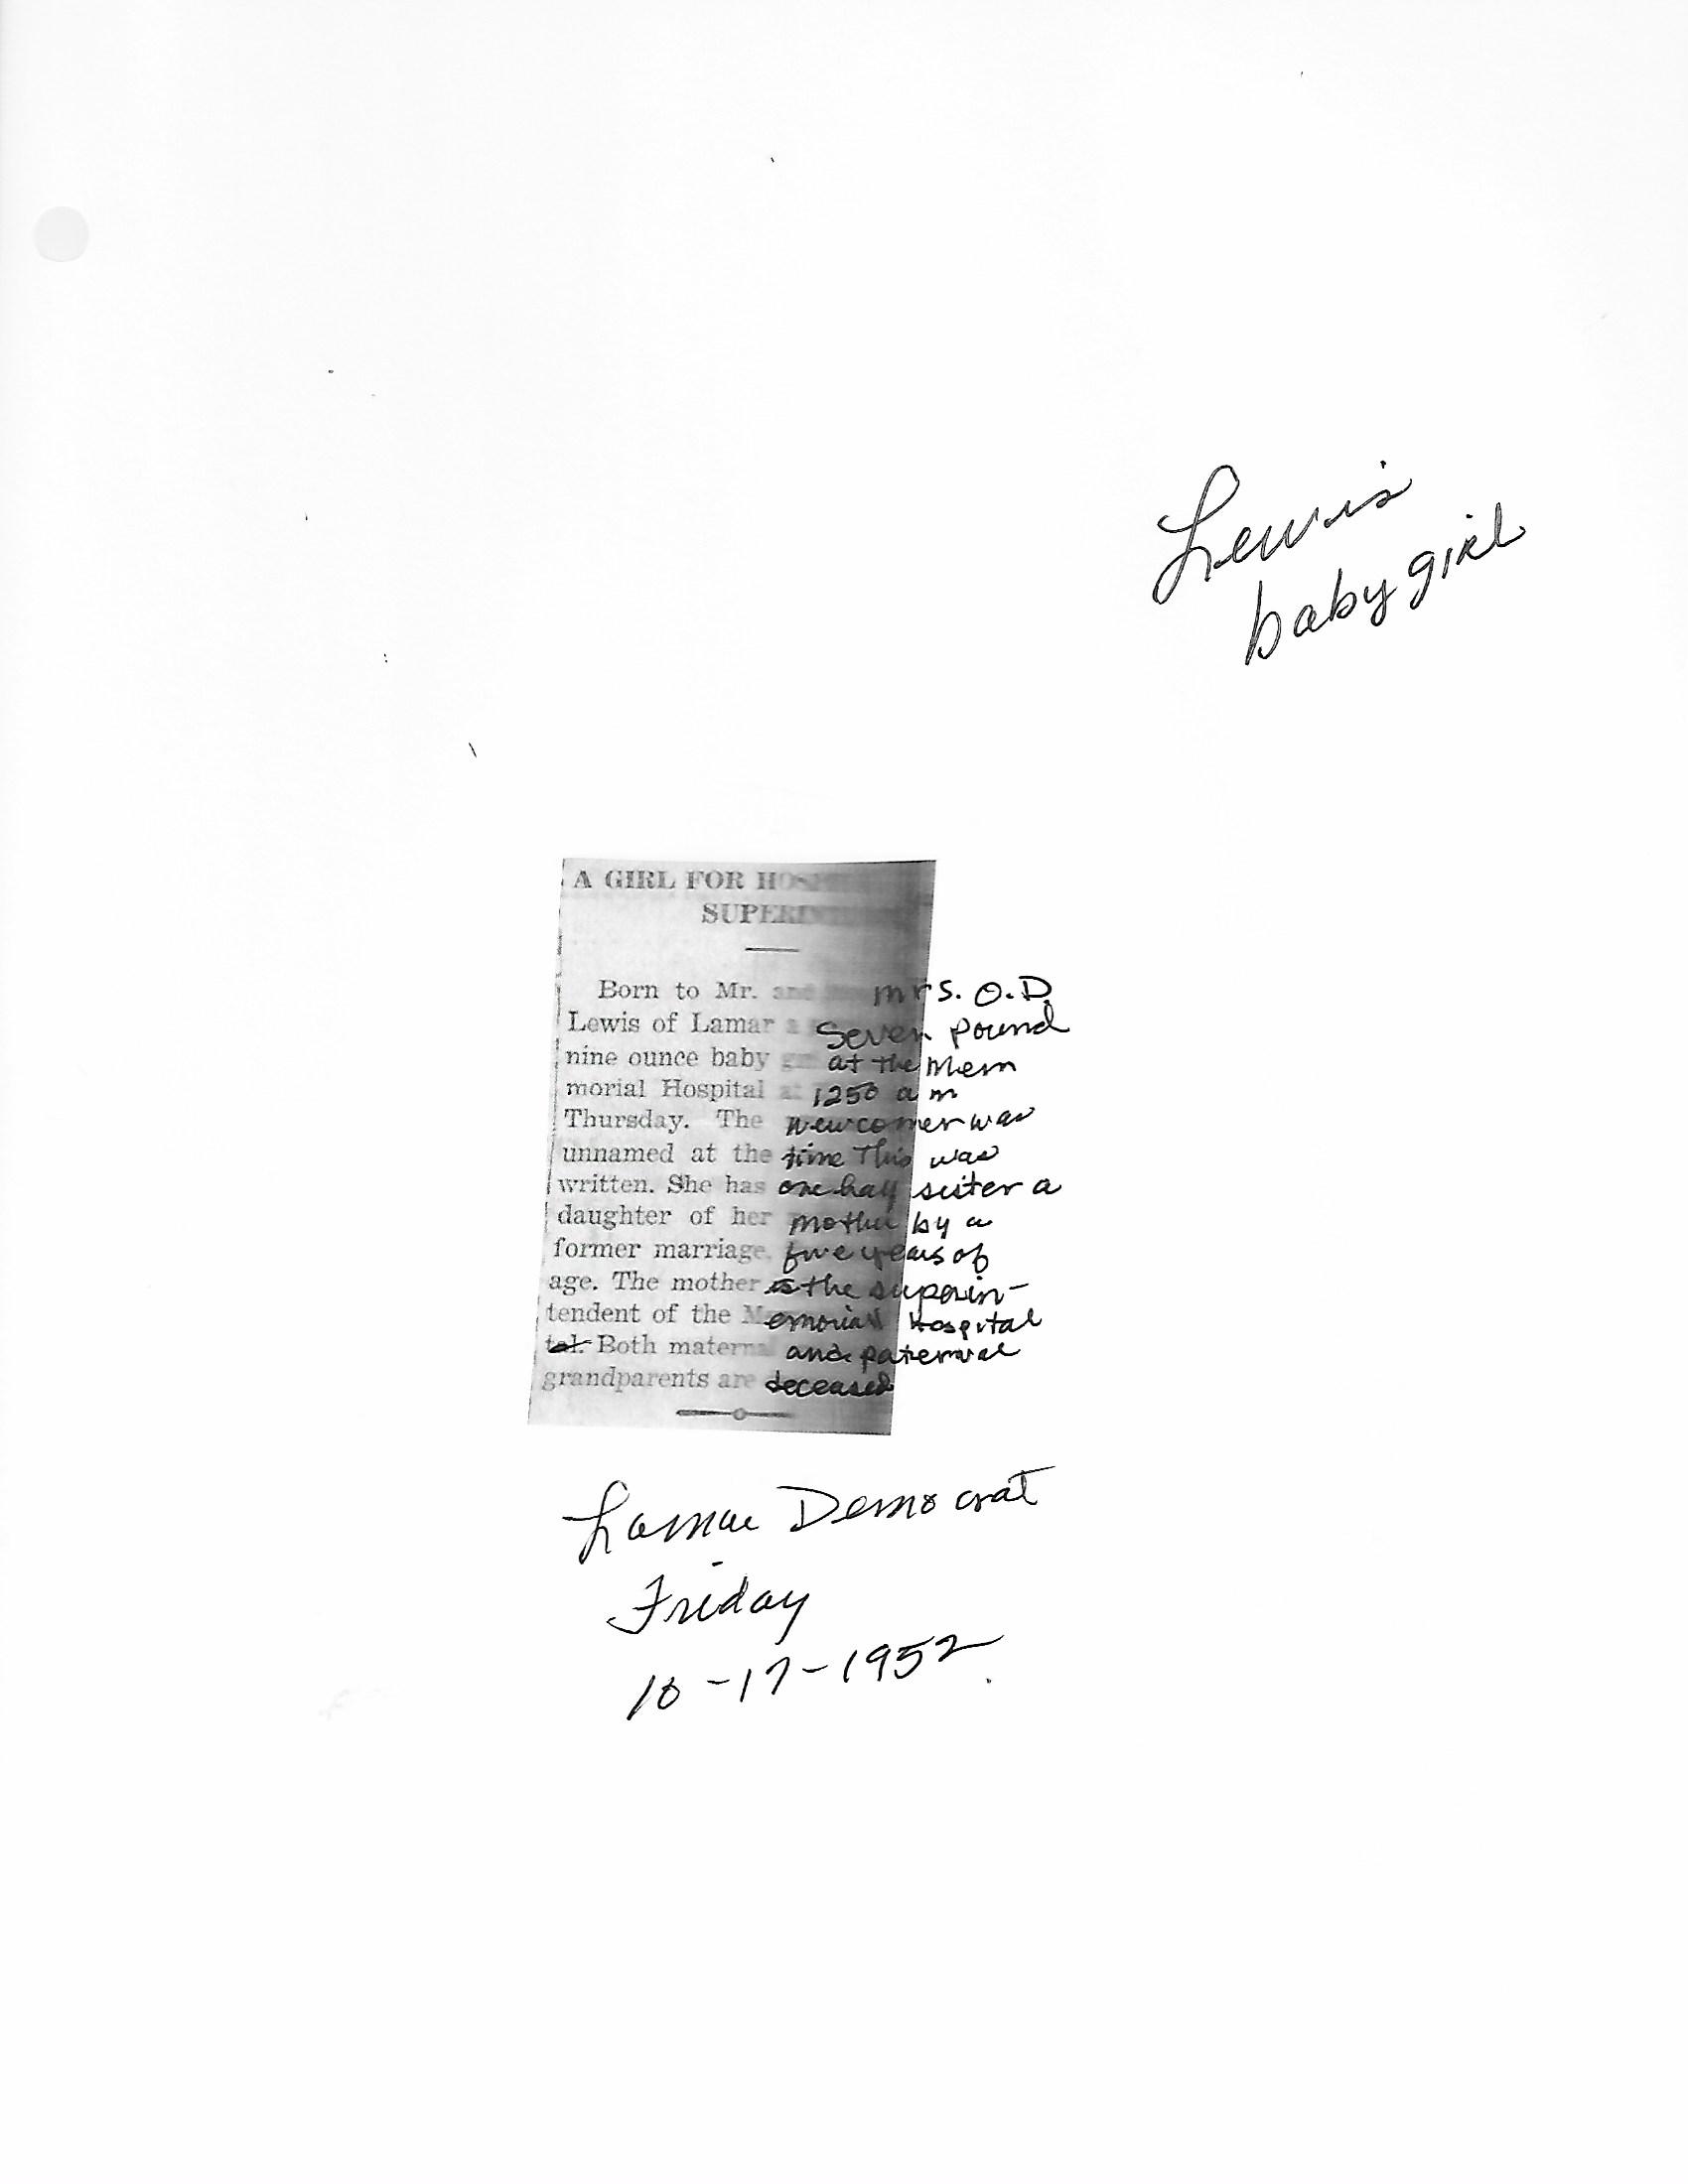 Lewis
baby girl
A GIRL FOR HOSP
SUPERIN
Born to Mr. and mrs. O.D.
Lewis of Lamar a Seven pound
nine ounce baby girl at the Mem
morial Hospital at 1250 a m
Thursday. The newcomer was
unnamed at the time This was
written. She has one half sister a
daughter of her mother by a
former marriage five years of
age. The mother is the superin-
tendent of the Memorial Hospital
tal. Both maternal and paternal
grandparents are deceased
Lamar Democrat
Friday
10-17-1952